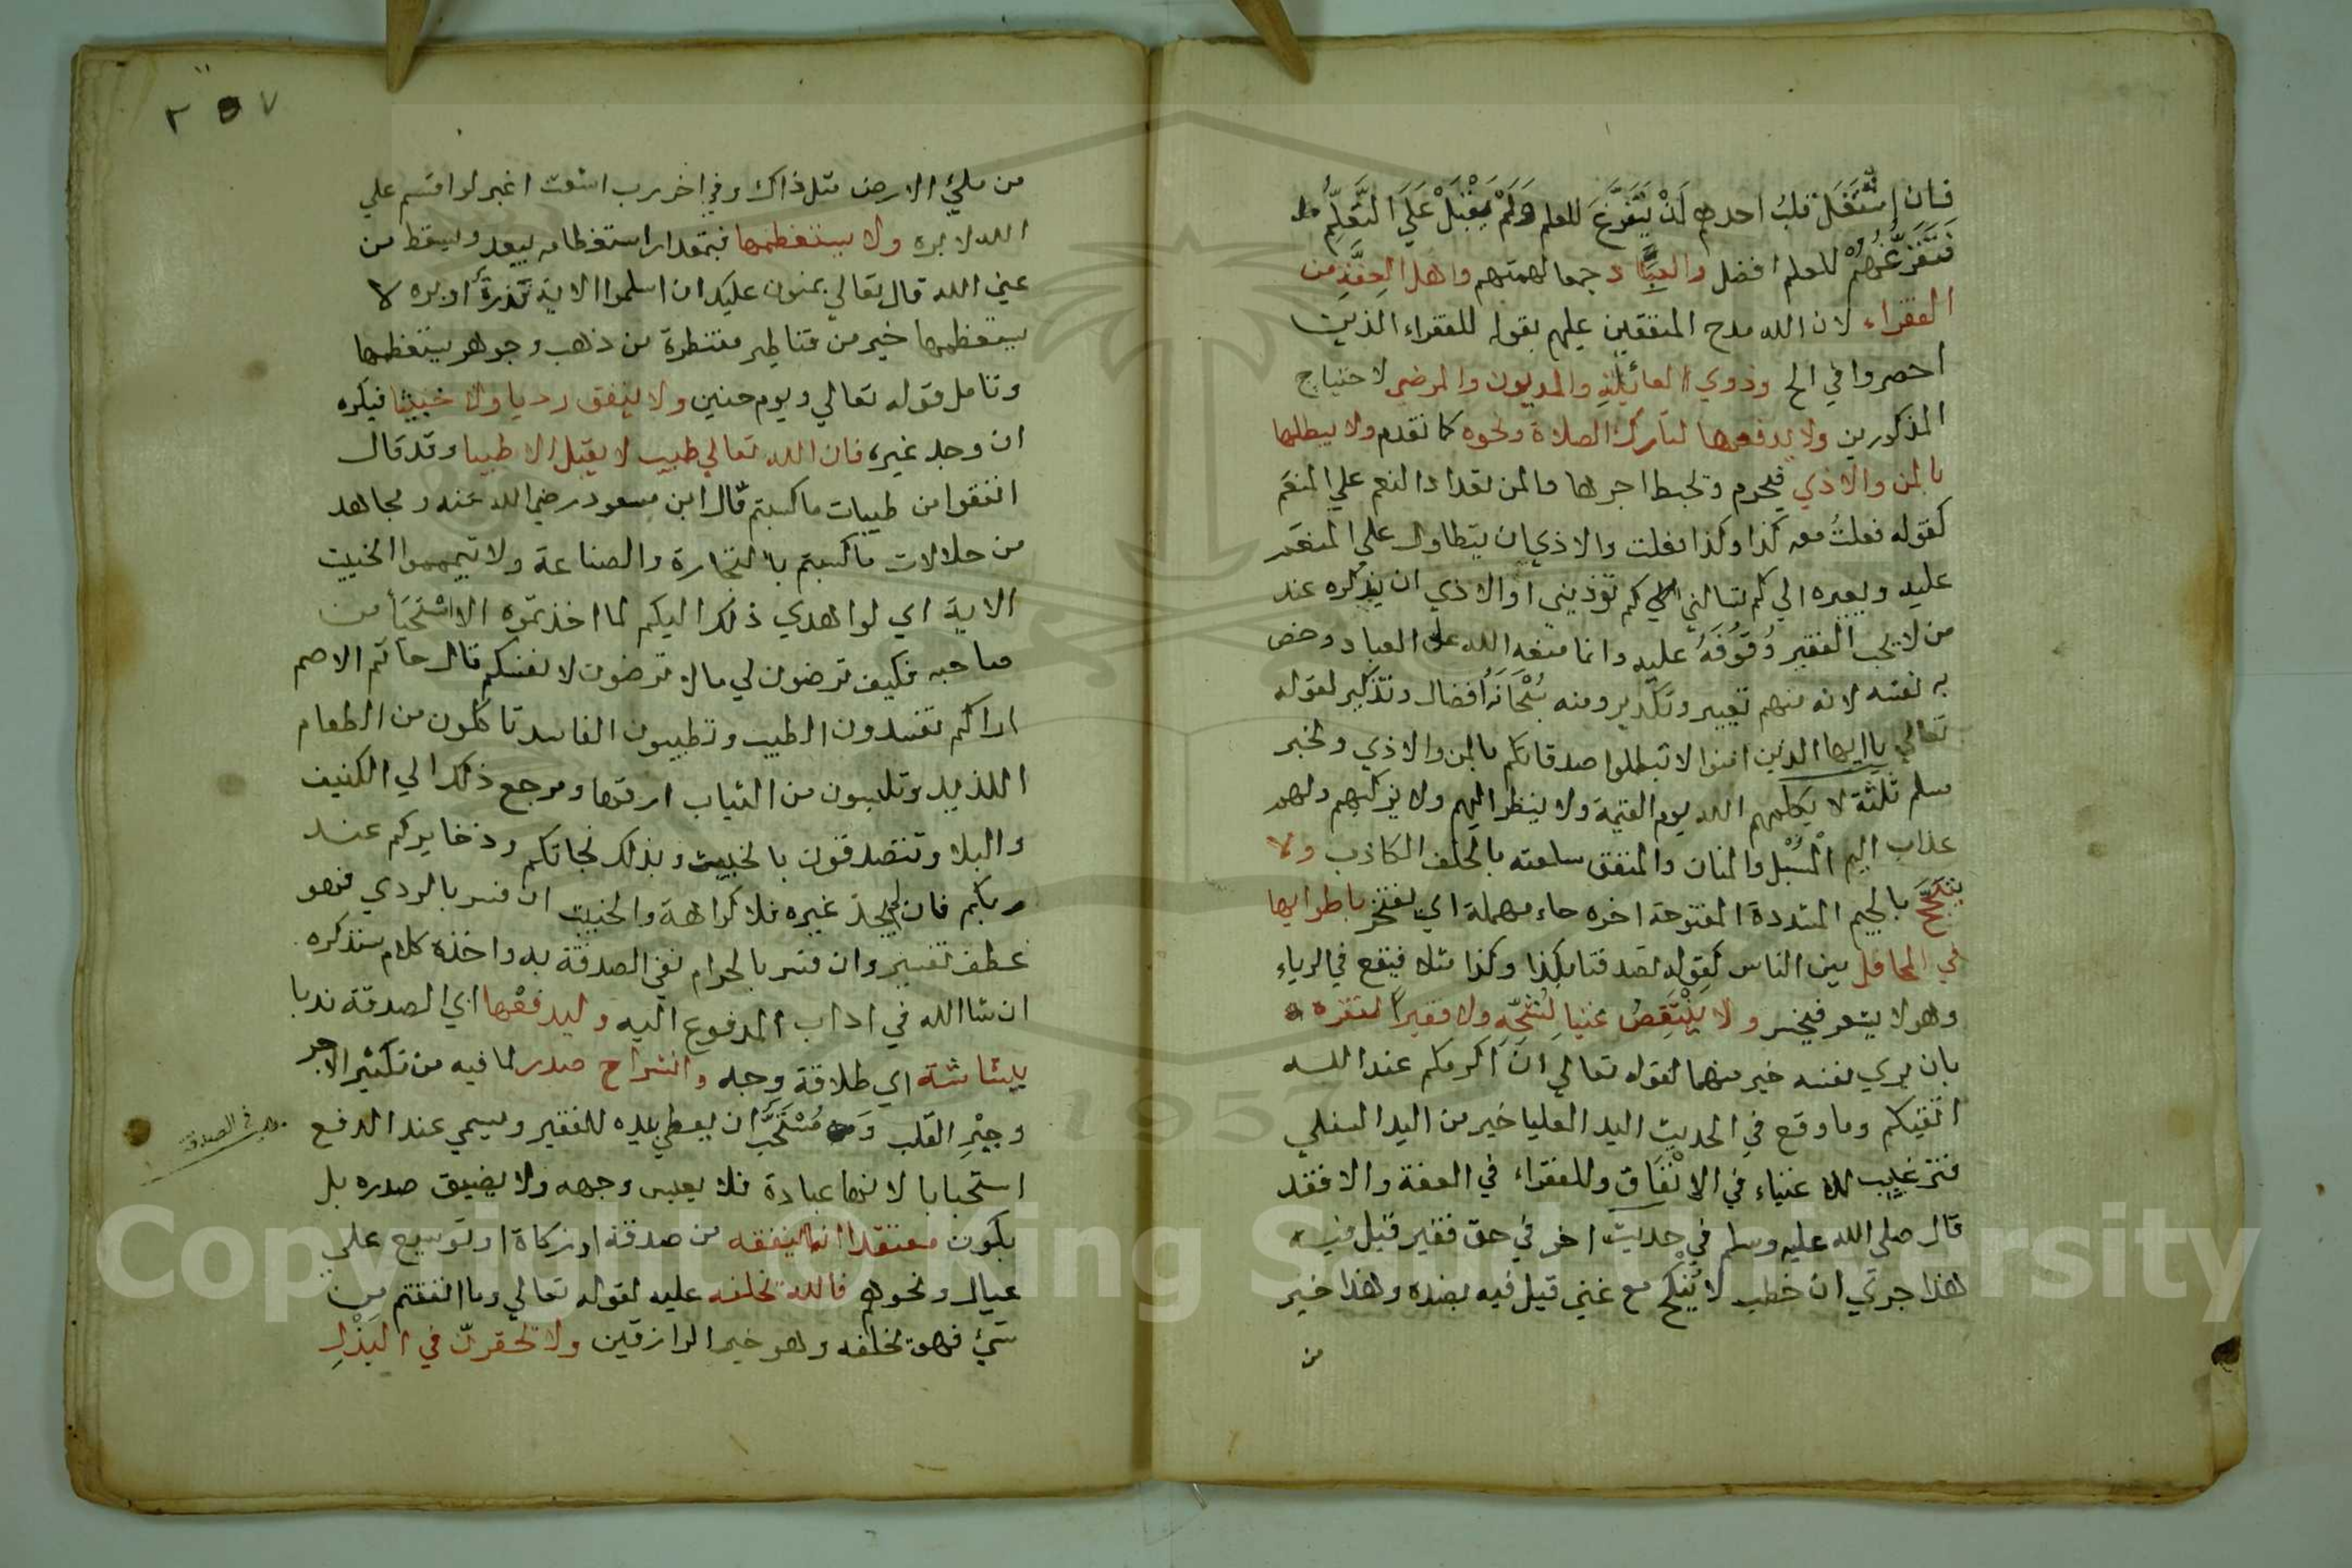 فان إشتغل قلب احدهم لَمْ يَتَفَرَّغ للعلم وَلَمْ يَقْبَلْ عَلَى التَّعَلُّمِ
فَتَفَرُّغُهُمْ للعلم افضل والعبَّاد جمعا لهمتهم واهل العِفَّةِ من
الفقراء لان الله مدح المنفقين عليهم بقوله للفقراء الذين
احصروا في الخ وذوي العائلةِ والمديون والمرضي لاحتياج
المذكورين ولا يدفعها لتارك الصلاة ونحوه كما تقدم ولا يبطلها
بالمن والاذي فيحرم وتحبط اجرها والمن تعداد النعم علي المنعَم
كقوله فعلتُ معه كذا وكذا فعلت والاذي ان يتطاول علي المنعَم
عليه ويعيره الي كم تسالني الي كم توذيني او الاذي ان يذكره عند
من لا يحب الفقير وُقُوفَهُ عليه وانما منعه الله علي العباد وخص
به نفسه لانه منهم تعيير وتكدير ومنه سُبْحَانَهُ أفضال وتذكير لقوله
تعالي ياايها الذين امنوا لا تبطلوا صدقاتكم بالمن والاذي ولخبر
مسلم ثلثة لا يكلمهم الله يوم القيمة ولا ينظر اليهم ولا يزكيهم ولهم
عذاب اليم الْمُسْبل والمنان والمنفق سلعته بالحلف الكاذب ولا
يتبَجَّح بالجيم المشددة المفتوحة اخره حاء مهملة اي يفتخر باطرايها
في المحافل بين الناس كقوله تصدقنا بكذا وكذا مثلا فيقع في الرياء
وهو لا يشعر فيخسر ولا يَنْتَقِصُ غنيا لِشُحِّهِ ولا فقيرا لفقره
بان يري نفسه خير منهما لقوله تعالي انَّ اكرمكم عند الله
اتقيكم وما وقع في الحديث اليد العليا خير من اليد السفلي
فترغيب للاغنياء في الانفَاق وللفقراء في العفة والا فقد
قال صلي الله عليه وسلم في حديث اخر في حق فقير قيل فيه
هذا حري ان خطب لا يُنْكح مع غني قيل فيه بضده وهذا خير
من
٢٥٧
من ملئ الارض مثل ذاك وفي اخر رب اشعث اغبر لو اقسم علي
الله لابره ولا يستعظمها فبمقدار استعظامه يبعد ويسقط من
عين الله قال تعالي يمنون عليك ان اسلموا الاية تذرة او بره لا
يستعظمها خير من قناطير مقنطرة من ذهب وجوهر يستعظمها
وتامل قوله تعالي ويوم حنين ولا ينفق رديا ولا خبيثا فيكره
ان وجد غيره فان الله تعالي طيب لا يقبل الا طيبا وقد قال
انفقوا من طيبات ما كسبتم قال ابن مسعود رضي الله عنه ومجاهد
من حلالات ما كسبتم بالتجارة والصناعة ولا تيمموا الخبيث
الاية اي لو اهدي ذلك اليكم لما اخذتموه الا اسْتحيَأ من
صاحبه فكيف ترضون لي مالا ترضون لانفسكم قال حاتم الاصم
اراكم تفسدون الطيب وتطيبون الفاسد تاكلون من الطعام
اللذيذ وتلبسون من الثياب ارقها ومرجع ذلك الي الكنيف
والبلا وتتصدقون بالخبيث وبذلك نجاتكم وذخايركم عند
ربكم فان لم يجد غيره فلا كراهة والخبيث ان فسر بالردي فهو
عطف تفسير وان فسر بالحرام نفي الصدقة به واخذه كلام سنذكره
ان شاالله في اداب المدفوع اليه وليدفعها اي الصدقة ندبا
ببشاشة اي طلاقة وجه وانشراح صدر لما فيه من تكثير الاجر
وجبْرِ القلب وَ مُسْتَحَبُّ ان يعطي بيده للفقير ويسمي عند الدفع
استحبابا لانها عبادة فلا يعبس وجهه ولا يضيق صدره بل
يكون معتقدا انما ينفقه من صدقة او زكاة او توسيع علي
عيال ونحوهم فالله يخلفه عليه لقوله تعالي وما انفقتم من
شئ فهو يخلفه وهو خير الرازقين ولا تحقرنّ في البذْلِ
في الصدقة
Copyright © King Saud University
1957